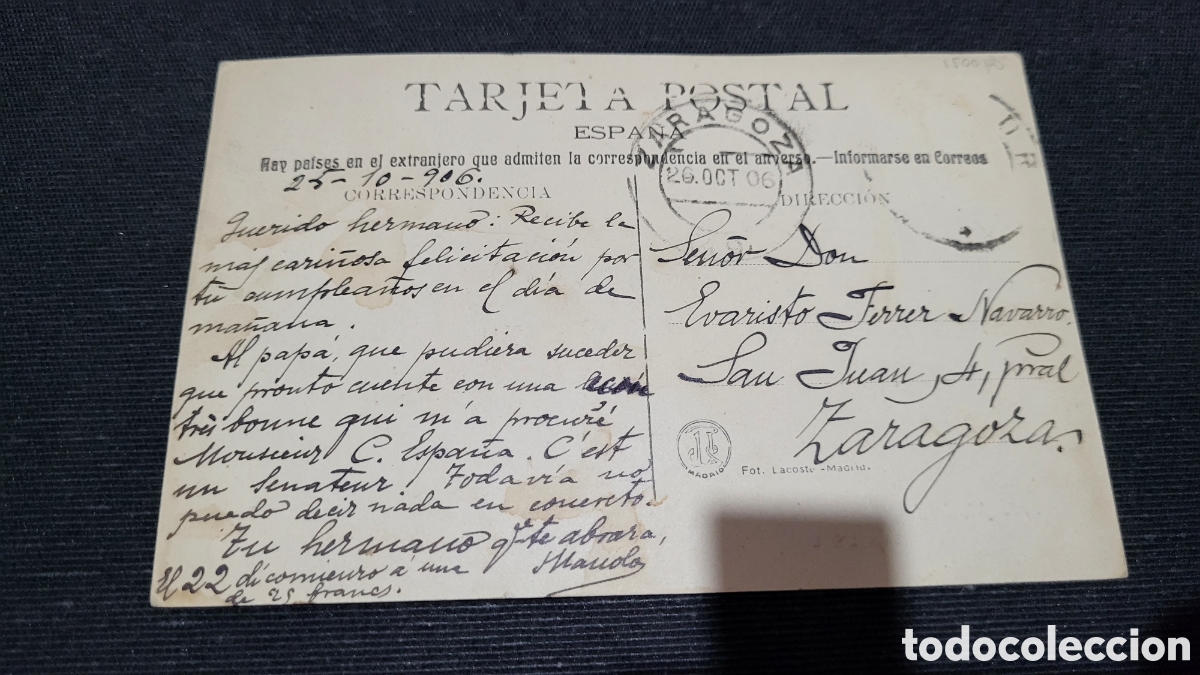 TARJETA POSTAL
ESPAÑA
Hay países en el extranjero que admiten la correspondencia en el anverso.—Informarse en Correos
25-10-906.
CORRESPONDENCIA
Querido hermano: Recibe la
mas cariñosa felicitación por
tu cumpleaños en el día de
mañana.
Al papá, que pudiera suceder
que pronto cuente con una
très bonne qui m'a procuré
Monsieur C. España. C'est
un Senateur. Todavía no
puedo decir nada en concreto.
Tu hermano q.e te abraza,
Manolo
El 22 di comienzo a una
de 25 francs.
ZARAGOZA
26.OCT 06
DIRECCIÓN
Señor Don
Evaristo Ferrer Navarro.
San Juan, 4, pral
Zaragoza
MADRID
Fot. Lacoste -Madrid.
todocoleccion